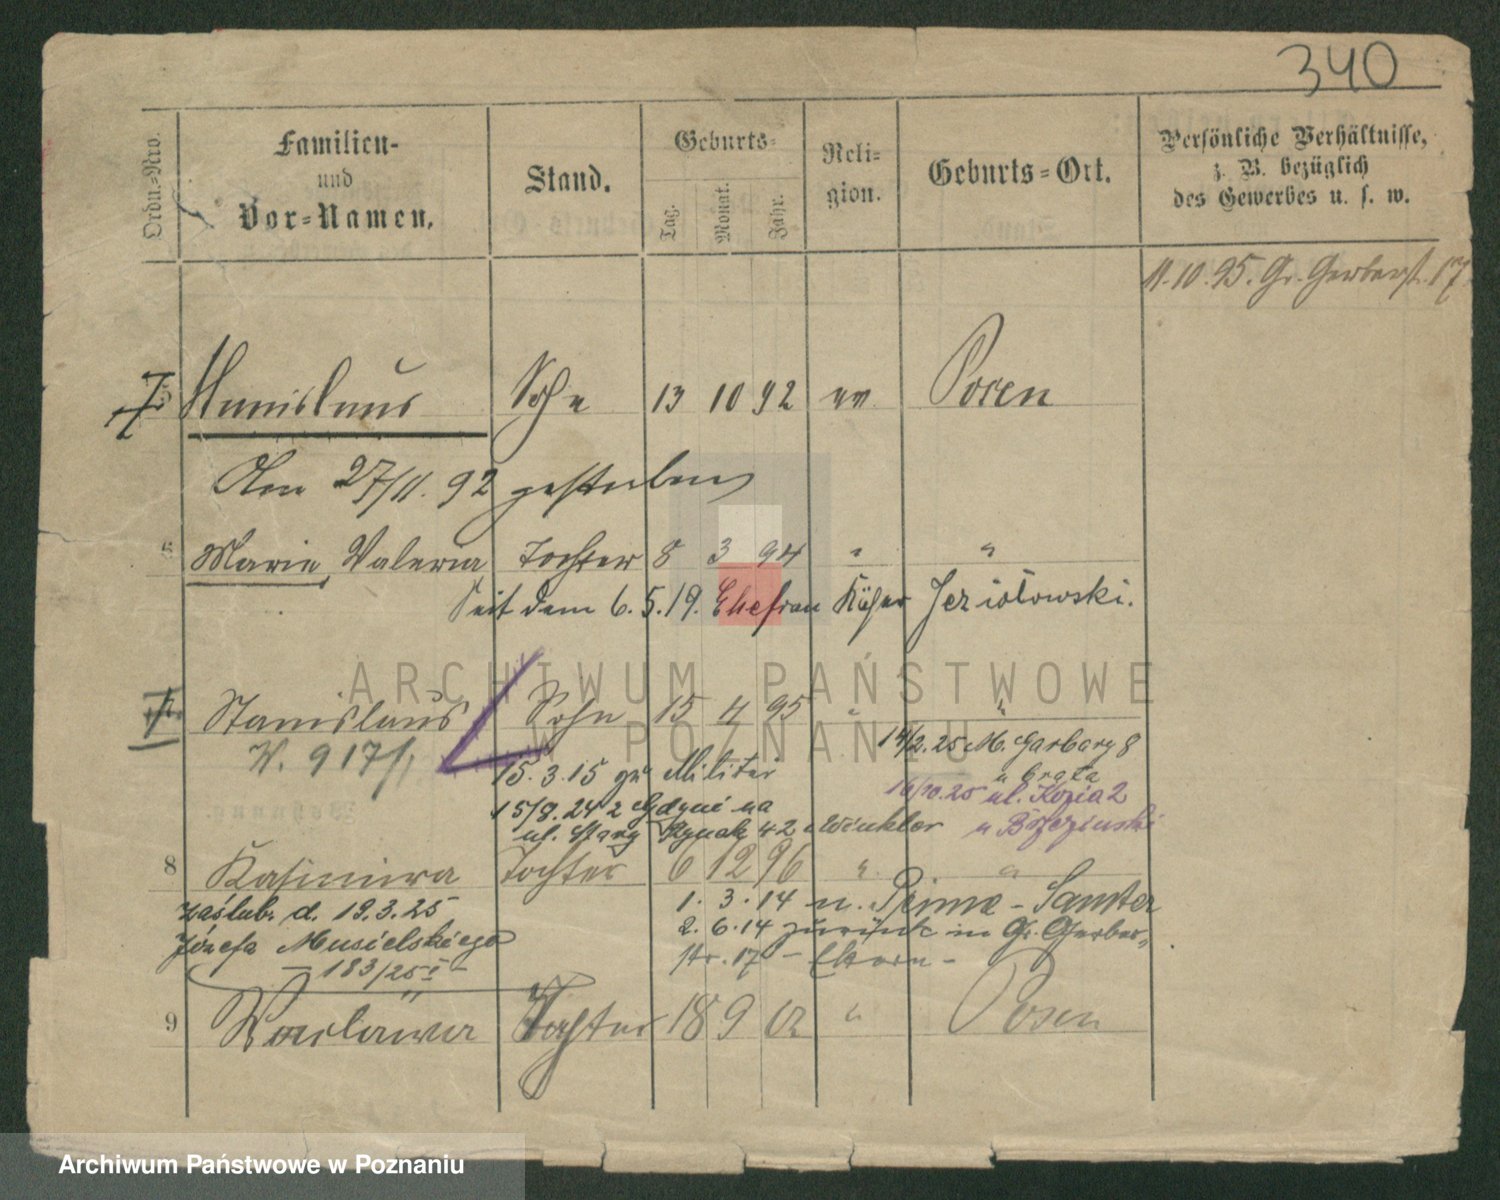 340
Ordn.-Nro.
Familien-
und
Vor-Namen.
Stand.
Geburts-
Tag.
Monat.
Jahr.
Reli-
gion.
Geburts-Ort.
Persönliche Verhältnisse,
z. B. bezüglich
des Gewerbes u. s. w.
11.10.95. Gr. Gerberst. 17
5 Stanislaus Sohn 13 10 92 Posen
Am 27/11. 92 gestorben
6 Marie Valeria Tochter 8 3 94 " "
Seit dem 6.5.19. Ehefrau Jeziołowski.
Stanislaus Sohn 15 4 95 " "
14/2.25 M. Garbary 8
u brata
15.3.15 zu Militär
16/10.25 ul. Kozia 2
15/8.24 z Gdyni na
ul. Stary Rynek 42 Winkler
u Brzezinski
8 Kasimira Tochter 6 12 96 " "
zaślub. d. 19.3.25
Józefa Musielskiego
– 183/25 I –
1.3.14 n. Peinne - Samter
2.6.14 zurück in Gr. Gerber-
str. 17 – Eltern –
9 Waclawa Tochter 18 9 02 " Posen
ARCHIWUM PAŃSTWOWE
W POZNANIU
Archiwum Państwowe w Poznaniu